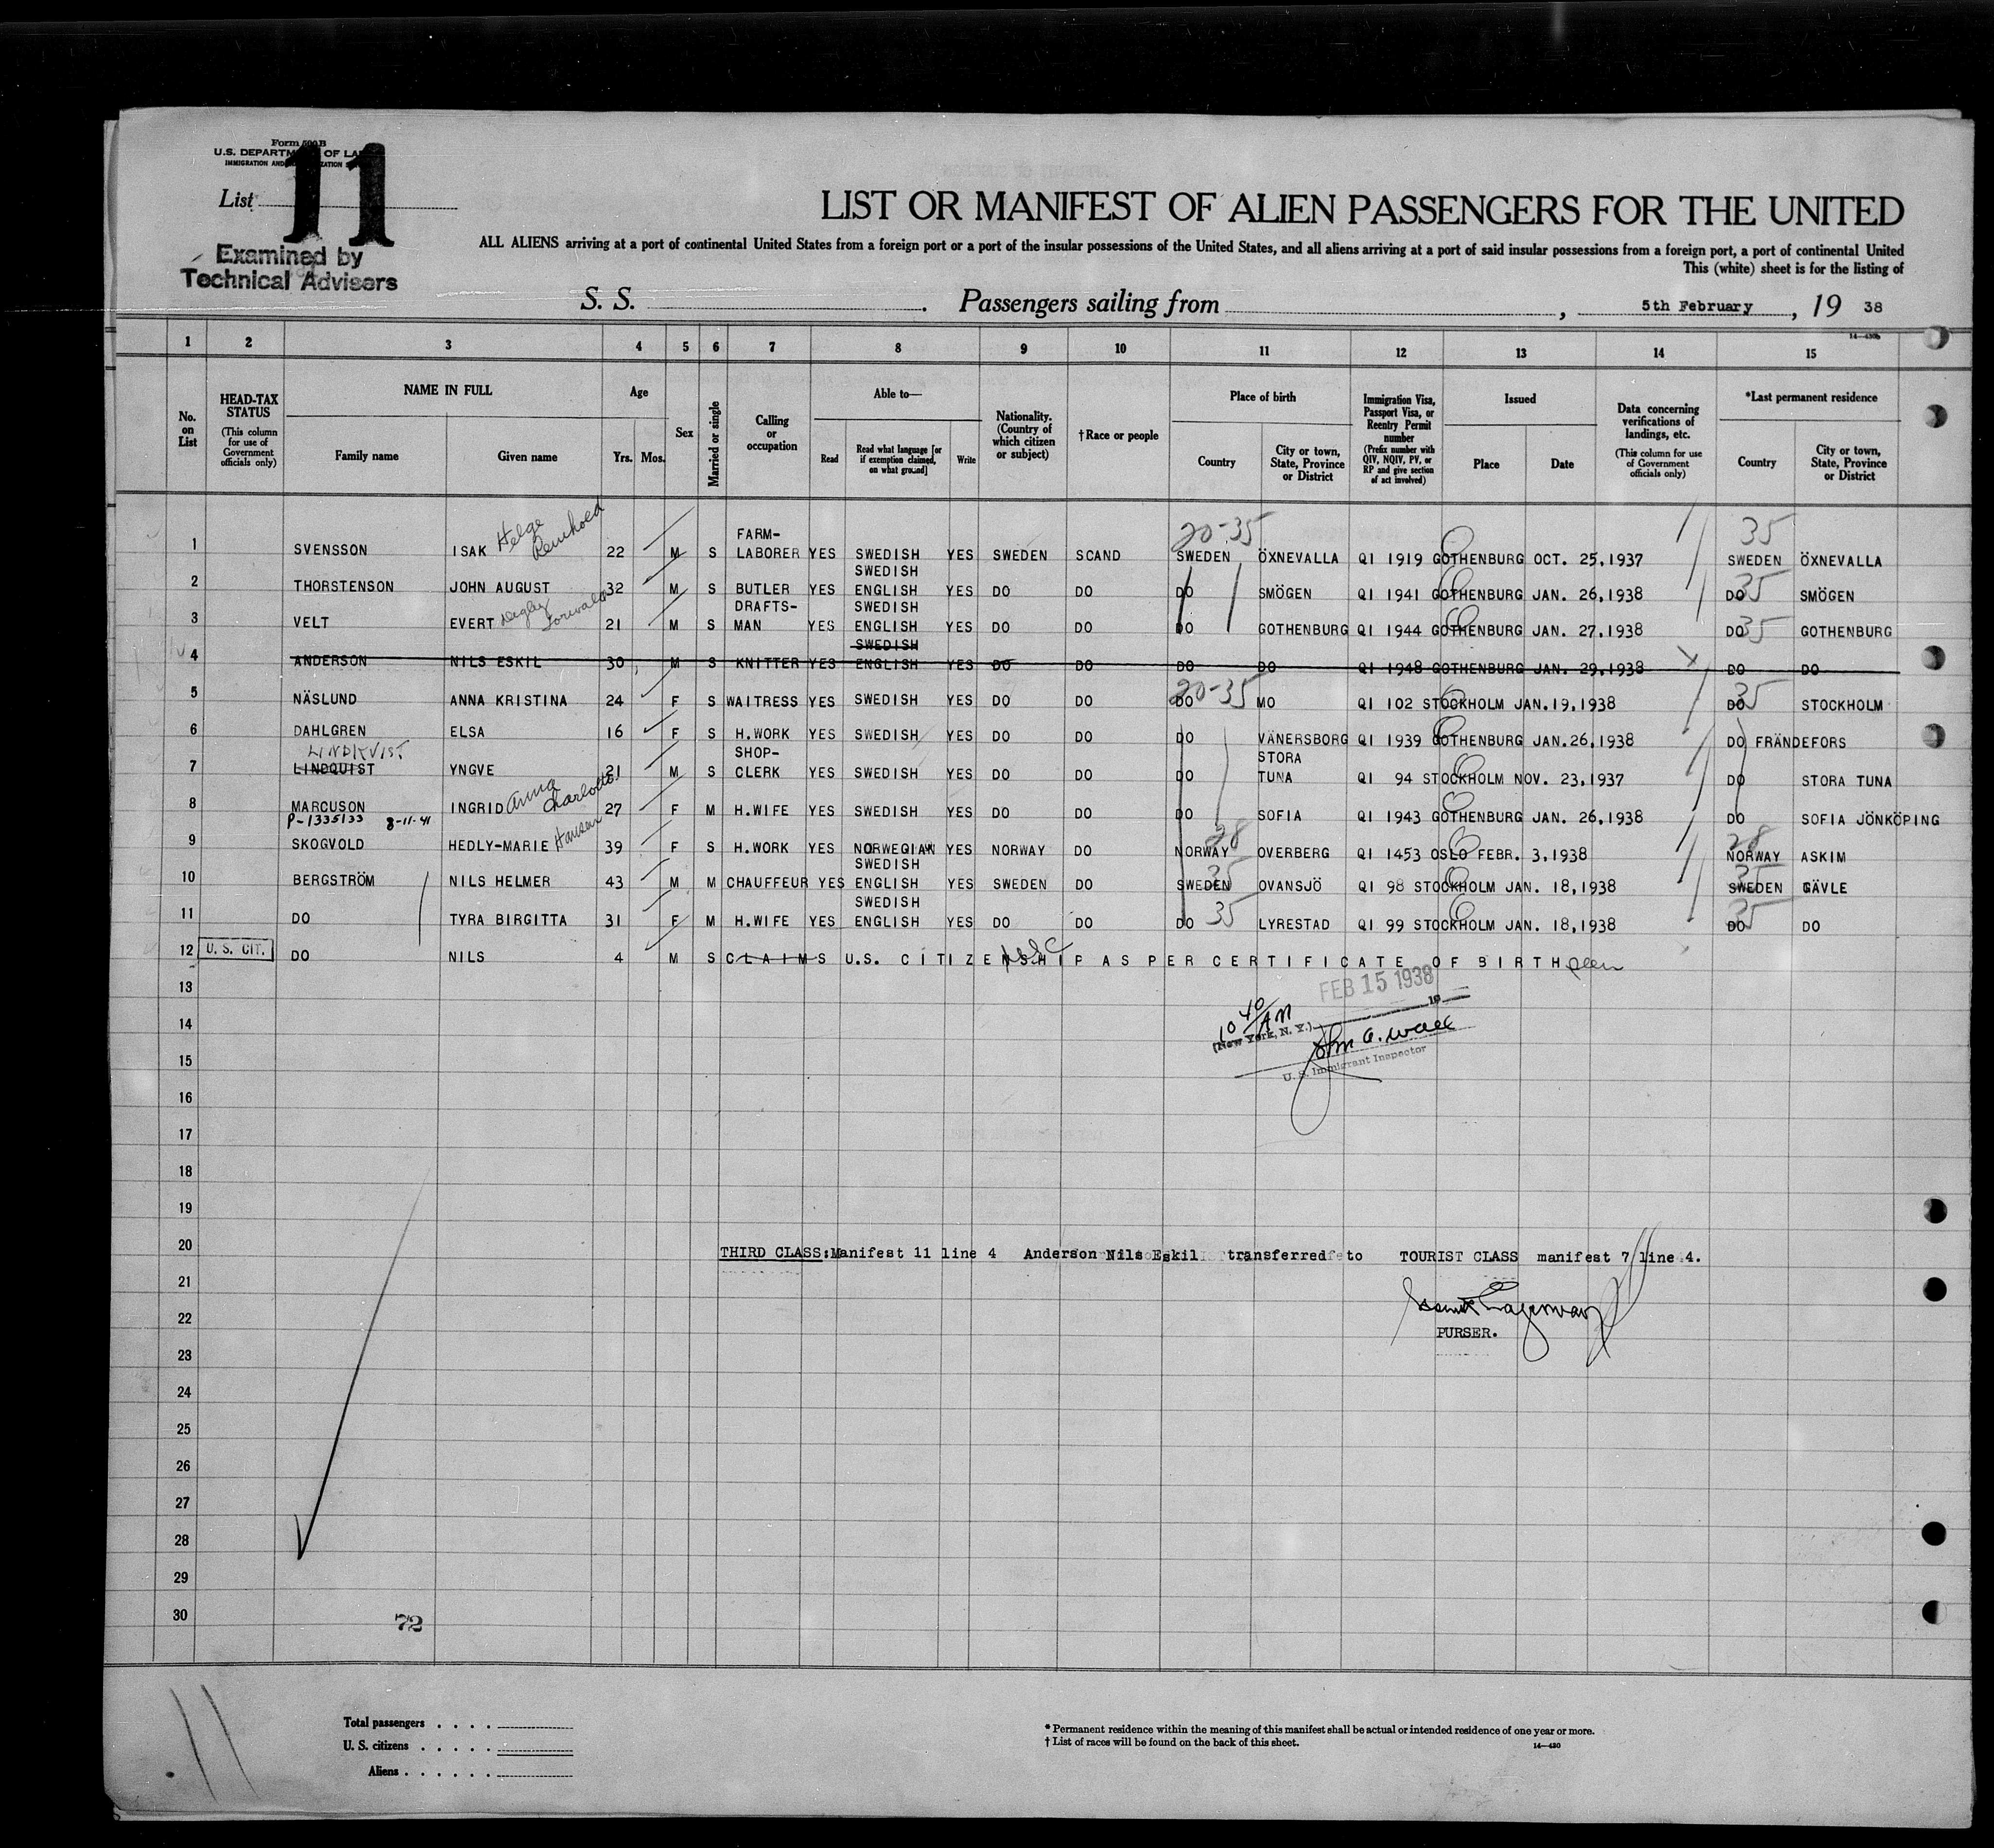 Form 500B
U.S. DEPARTMENT OF LA
IMMIGRATION AND
List 11
Examined by
Technical Advisers
LIST OR MANIFEST OF ALIEN PASSENGERS FOR THE UNITED
ALL ALIENS arriving at a port of continental United States from a foreign port or a port of the insular possessions of the United States, and all aliens arriving at a port of said insular possessions from a foreign port, a port of continental United
This (white) sheet is for the listing of
S. S. . Passengers sailing from , 5th February , 19 38
14—430b
1 2 3 4 5 6 7 8 9 10 11 12 13 14 15
No. on List
HEAD-TAX STATUS (This column for use of Government officials only)
NAME IN FULL Family name Given name
Age Yrs. Mos.
Sex
Married or single
Calling or occupation
Able to— Read Read what language [or if exemption claimed, on what ground] Write
Nationality. (Country of which citizen or subject)
†Race or people
Place of birth Country City or town, State, Province or District
Immigration Visa, Passport Visa, or Reentry Permit number (Prefix number with QIV, NQIV, PV, or RP and give section of act involved)
Issued Place Date
Data concerning verifications of landings, etc. (This column for use of Government officials only)
*Last permanent residence Country City or town, State, Province or District
1 SVENSSON ISAK Helge Reinhold 22 M S FARM-LABORER YES SWEDISH YES SWEDEN SCAND 20-35 SWEDEN ÖXNEVALLA QI 1919 GOTHENBURG OCT. 25,1937 35 SWEDEN ÖXNEVALLA
2 THORSTENSON JOHN AUGUST 32 M S BUTLER YES SWEDISH ENGLISH YES DO DO DO SMÖGEN QI 1941 GOTHENBURG JAN. 26,1938 DO 35 SMÖGEN
3 VELT EVERT 21 M S DRAFTS-MAN YES SWEDISH ENGLISH YES DO DO DO GOTHENBURG QI 1944 GOTHENBURG JAN. 27,1938 DO 35 GOTHENBURG
4 ANDERSON NILS ESKIL 30 M S KNITTER YES SWEDISH ENGLISH YES DO DO DO DO QI 1948 GOTHENBURG JAN. 29,1938 DO DO
5 NÄSLUND ANNA KRISTINA 24 F S WAITRESS YES SWEDISH YES DO DO 20-35 DO MO QI 102 STOCKHOLM JAN.19,1938 35 DO STOCKHOLM
6 DAHLGREN ELSA 16 F S H.WORK YES SWEDISH YES DO DO DO VÄNERSBORG QI 1939 GOTHENBURG JAN.26,1938 DO FRÄNDEFORS
LINDKVIST
7 LINDQUIST YNGVE 21 M S SHOP-CLERK YES SWEDISH YES DO DO DO STORA TUNA QI 94 STOCKHOLM NOV. 23,1937 DO STORA TUNA
8 MARCUSON INGRID Anna Charlotta 27 F M H.WIFE YES SWEDISH YES DO DO DO SOFIA QI 1943 GOTHENBURG JAN. 26,1938 DO SOFIA JÖNKÖPING
P-1335133 8-11-41
9 SKOGVOLD HEDLY-MARIE Hansen 39 F S H.WORK YES NORWEGIAN YES NORWAY DO 28 NORWAY OVERBERG QI 1453 OSLO FEBR. 3,1938 28 NORWAY ASKIM
10 BERGSTRÖM NILS HELMER 43 M M CHAUFFEUR YES SWEDISH ENGLISH YES SWEDEN DO 35 SWEDEN OVANSJÖ QI 98 STOCKHOLM JAN. 18,1938 35 SWEDEN GÄVLE
11 DO TYRA BIRGITTA 31 F M H.WIFE YES SWEDISH ENGLISH YES DO DO DO 35 LYRESTAD QI 99 STOCKHOLM JAN. 18,1938 35 DO DO
12 U. S. CIT. DO NILS 4 M S CLAIMS U.S. CITIZENSHIP AS PER CERTIFICATE OF BIRTH seen
13
FEB 15 1938
14
10 40/AM 19
(New York, N. Y.)
John A. Wall
15
U. S. Immigrant Inspector
16
17
18
19
20 THIRD CLASS:Manifest 11 line 4 Anderson Nils Eskil transferred to TOURIST CLASS manifest 7 line 4.
21
22
PURSER.
23
24
25
26
27
28
29
30
72
11
Total passengers . . . .
U. S. citizens . . . . .
Aliens . . . . . .
* Permanent residence within the meaning of this manifest shall be actual or intended residence of one year or more.
† List of races will be found on the back of this sheet.
14—430